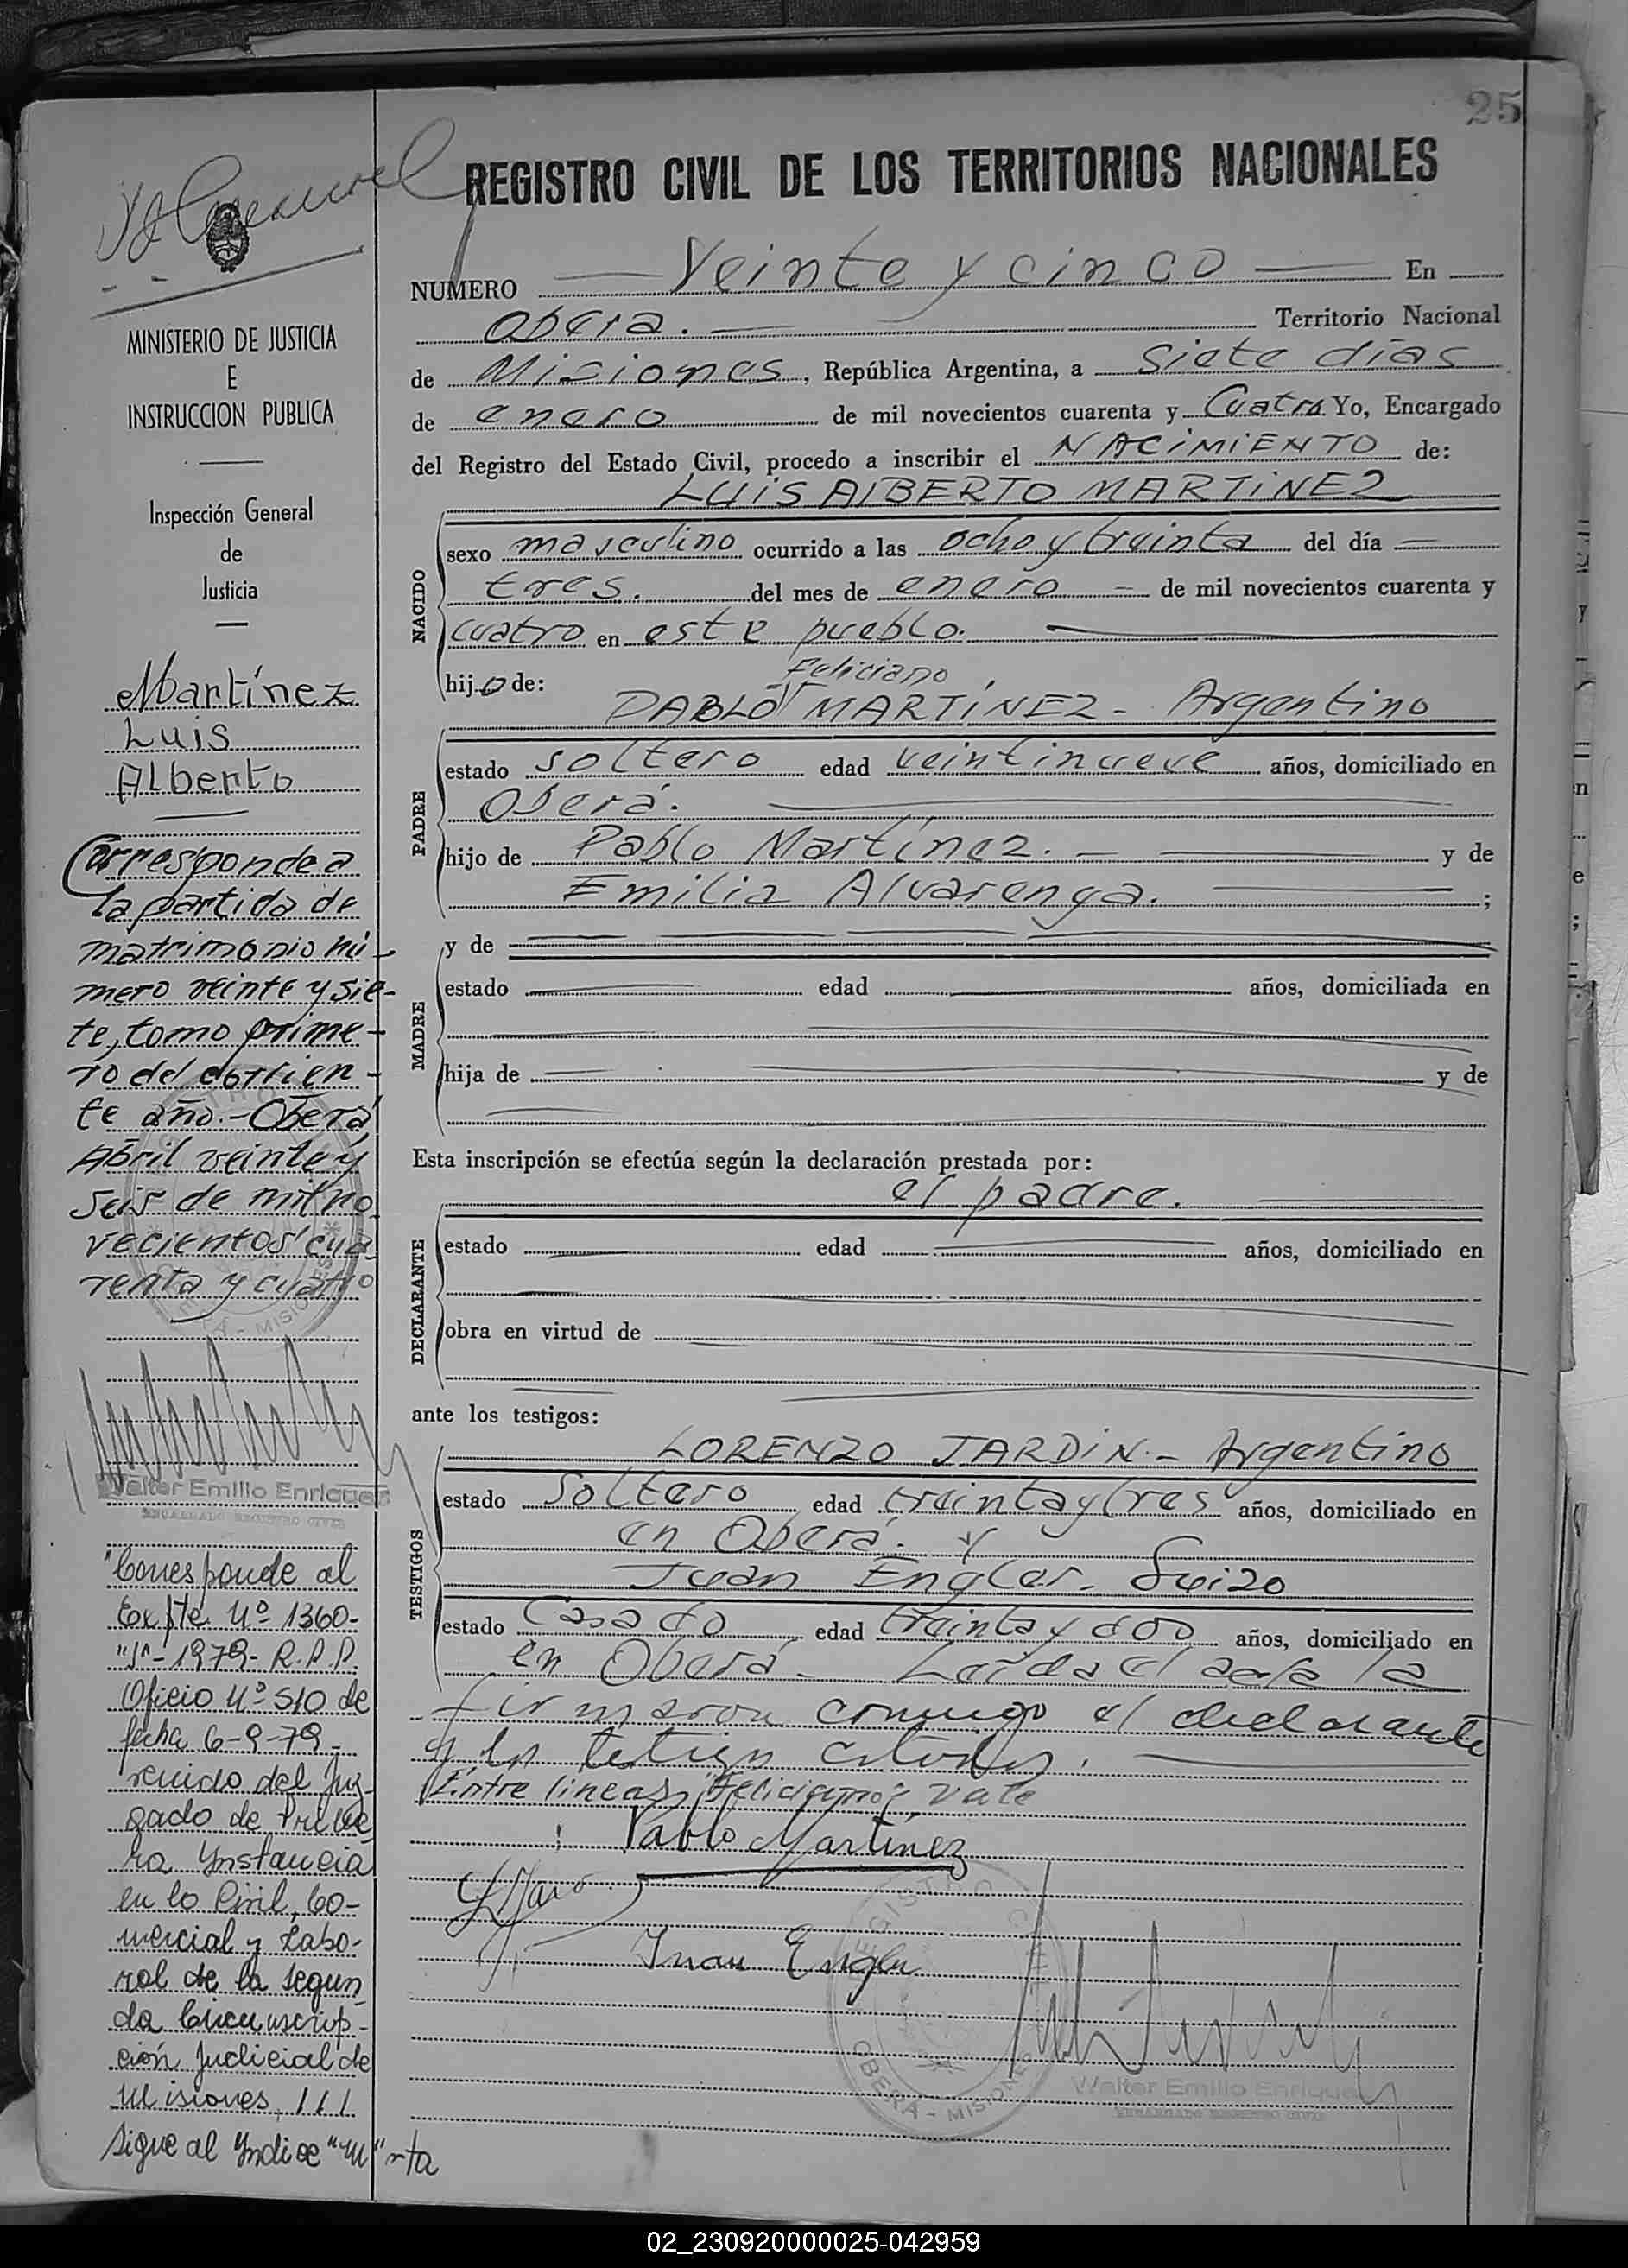 25
REGISTRO CIVIL DE LOS TERRITORIOS NACIONALES
NUMERO Veinte y cinco En
Oberá. Territorio Nacional
de Misiones, República Argentina, a siete días
de enero de mil novecientos cuarenta y Cuatro Yo, Encargado
del Registro del Estado Civil, procedo a inscribir el NACIMIENTO de:
LUIS ALBERTO MARTINEZ
NACIDO
sexo masculino ocurrido a las ocho y treinta del día
tres. del mes de enero de mil novecientos cuarenta y
cuatro en este pueblo.
Feliciano
hijo de:
PABLO MARTINEZ - Argentino
PADRE
estado soltero edad veintinueve años, domiciliado en
Oberá.
hijo de Pablo Martínez. y de
Emilia Alvarenga. ;
MADRE
y de
estado edad años, domiciliada en
hija de y de
Esta inscripción se efectúa según la declaración prestada por:
el padre.
DECLARANTE
estado edad años, domiciliado en
obra en virtud de
ante los testigos:
TESTIGOS
LORENZO JARDIN - Argentino
estado Soltero edad treinta y tres años, domiciliado en
en Oberá. y
Juan Engler - Suizo
estado Casado edad treinta y dos años, domiciliado en
en Oberá - Leída el acta la
firmaron conmigo el declarante
y los testigos citados.
Entre lineas "Feliciano" Vale
Pablo Martínez
Juan Engler
REGISTRO CIVIL
OBERA - MISIONES
Walter Emilio Enriquez
ENCARGADO REGISTRO CIVIL
MINISTERIO DE JUSTICIA
E
INSTRUCCION PUBLICA
Inspección General
de
Justicia
Martínez
Luis
Alberto
Corresponde a
la partida de
matrimonio nú-
mero veinte y sie-
te, tomo prime-
ro del corrien-
te año.- Oberá
Abril veinte y
seis de mil no
vecientos cua
renta y cuatro
Walter Emilio Enriquez
ENCARGADO REGISTRO CIVIL
"Corresponde al
Expte. Nº 1360-
"J"- 1979- R.P.P.
Oficio Nº 510 de
fecha 6-9-79-
remido del Juz-
gado de Prime
ra Instancia
en lo Civil, Co-
mercial y Labo-
ral de la Segun
da Circunscrip-
ción Judicial de
Misiones, ///
Sigue al Indice "M" rta
02_230920000025-042959